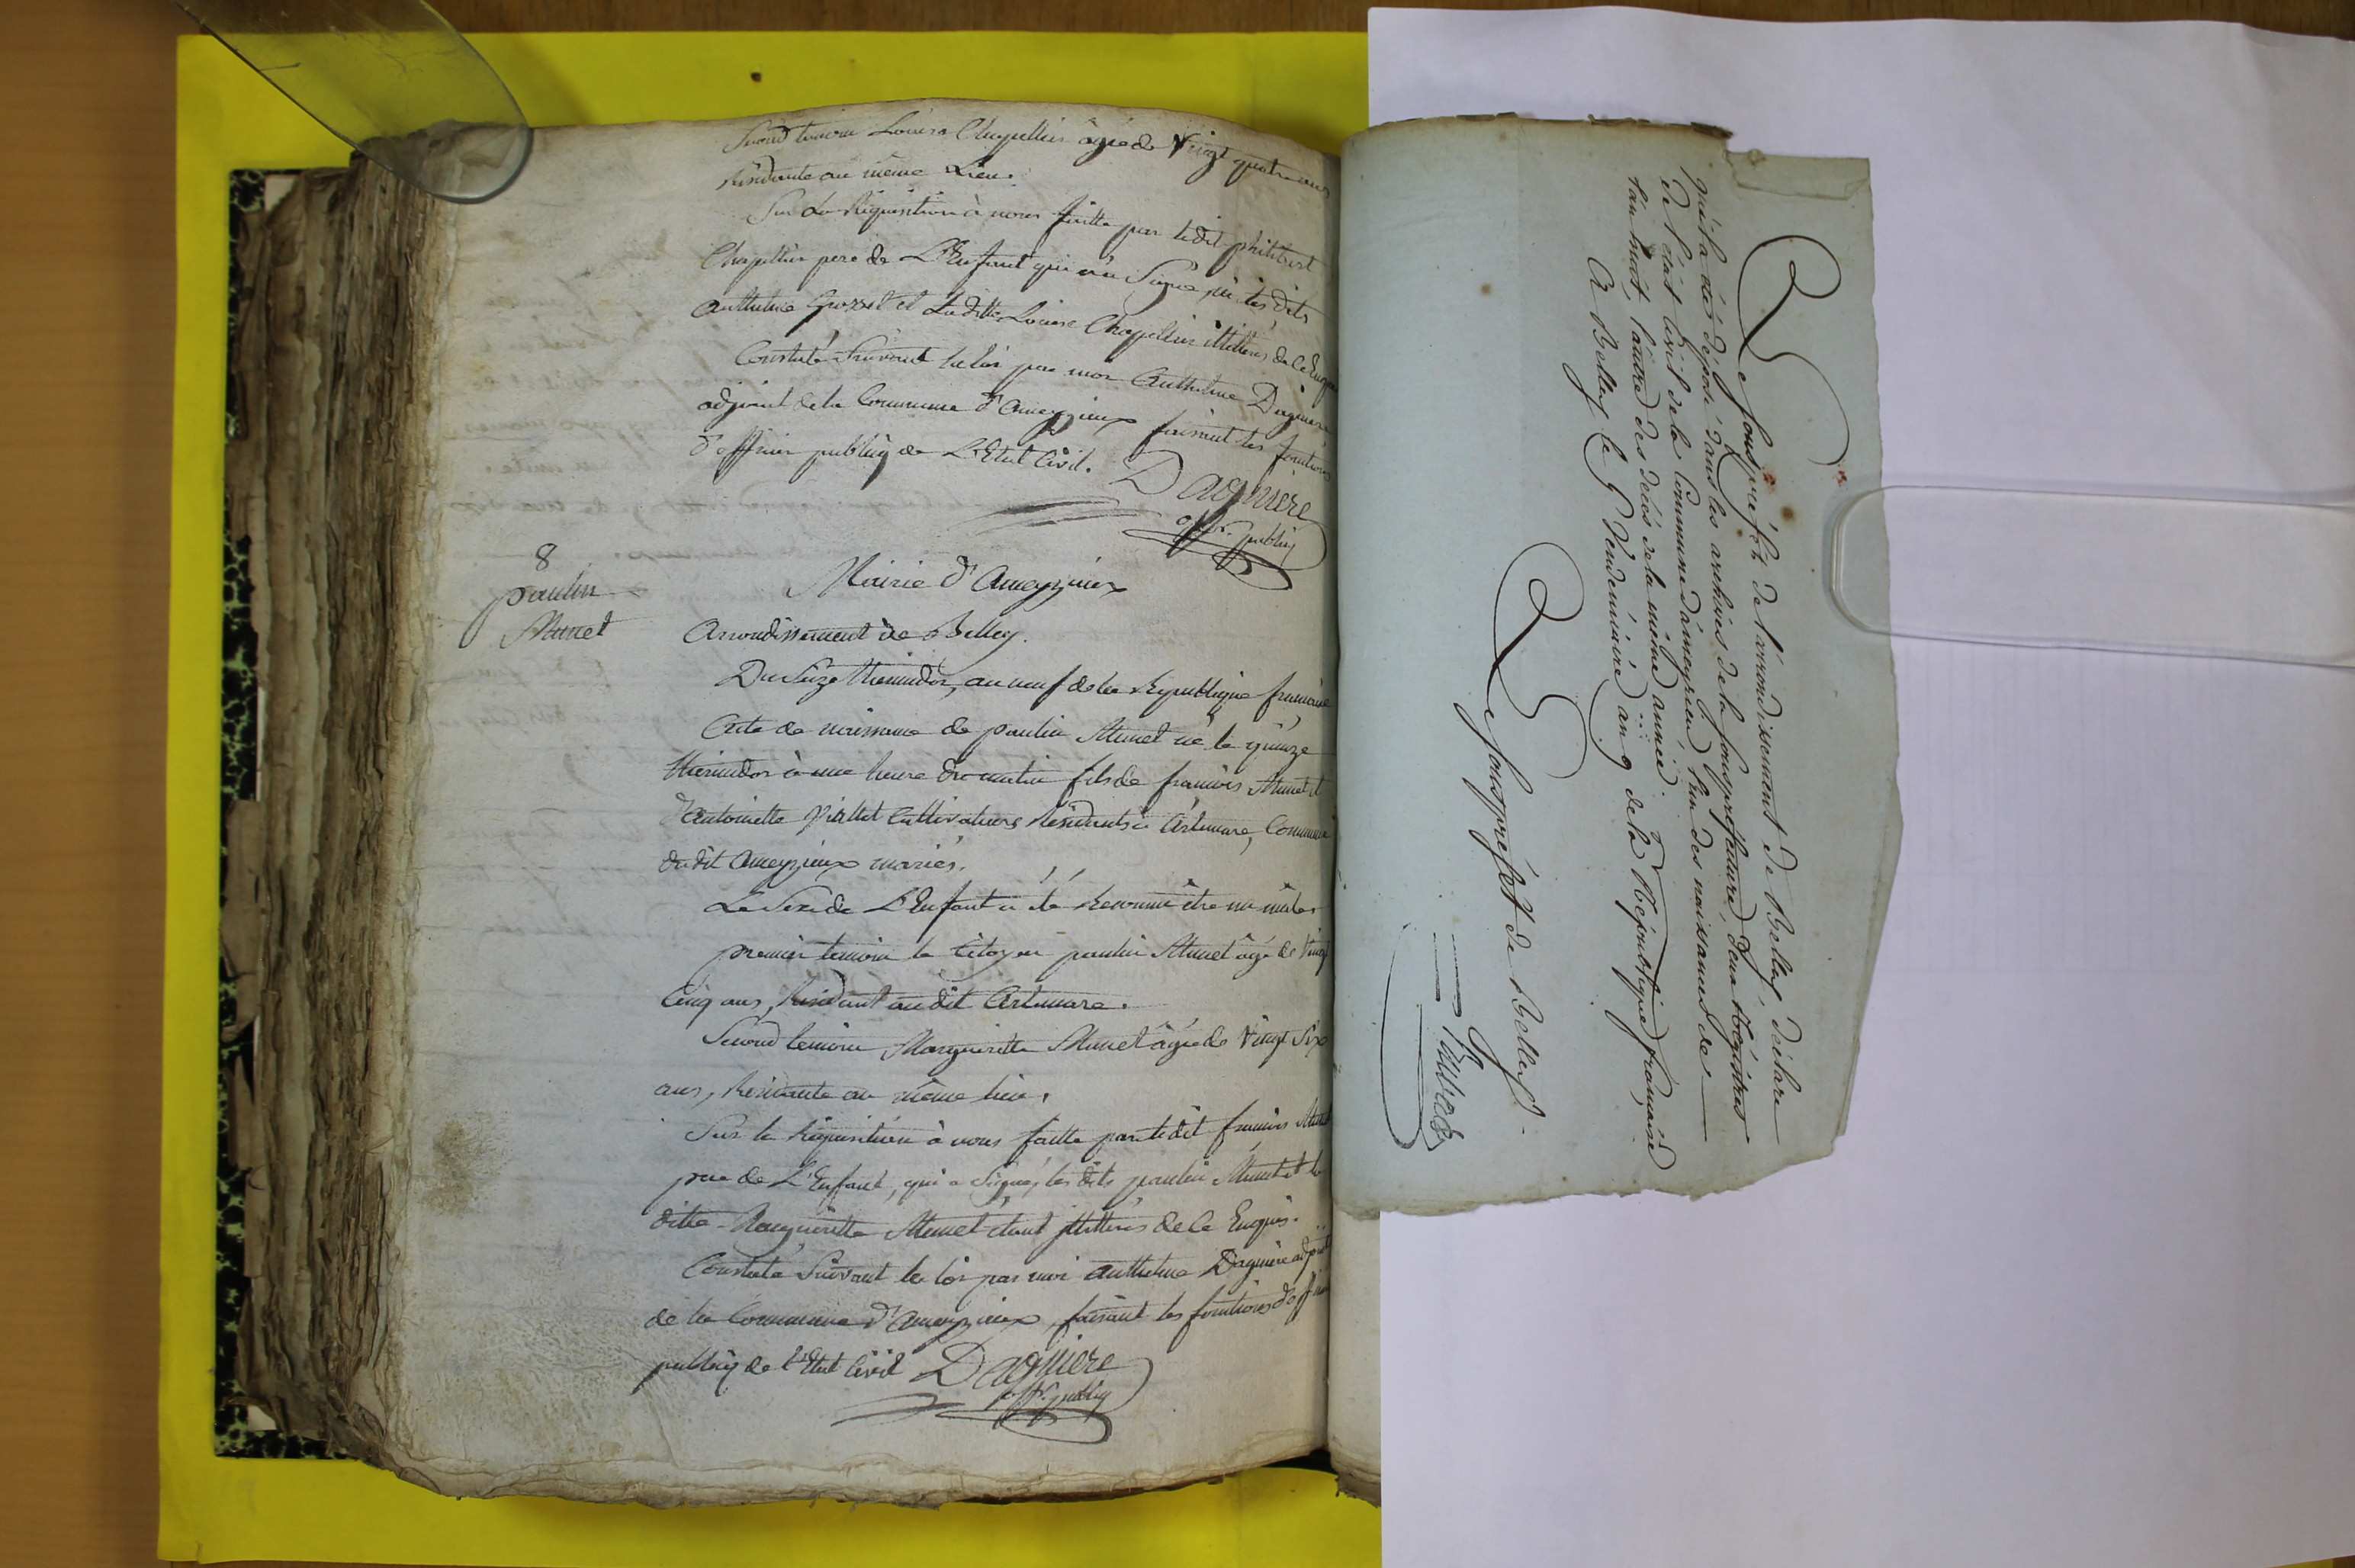 Second temoin Louise Chapellier âgée de Vingt quatre ans
Résidante au même Lieu.
Sur la Réquisition à nous faitte par ledit philibert
Chapellier pere de L'Enfant qui n'a Signé ni les dits
Anthelme et Laditte Louise Chapellier illitérés de ce Enquis
Constaté Suivant la loi par moi Anthelme Dagniere
adjoint de la Commune d'Ameyzieux faisant les fonctions
d'officier publiq de L'Etat Civil. Dagniere
offr. publiq
8
paulin
Munet
Mairie d'Ameyzieux
Arrondissement de Belley.
Du Seize thermidor, an neuf de la Republique francaise
Acte de naissance de paulin Munet né le quinze
thermidor à une heure du matin fils de francois Munet et
d'Antoinette Viallet Cultivateurs Résidants à Artemare, Commune
dudit Ameyzieux mariés.
Le Sexe de L'Enfant a été Reconnu être un mâle
premier temoin le Citoyen paulin Munet âgé de Vingt
Cinq ans, Résidant audit Artemare.
Second temoin Margueritte Munet âgée de Vingt Six
ans, Residante au même lieu.
Sur la Réquisition à nous faitte par ledit francois Munet
pere de L'Enfant, qui a Signé, les dits paulin Munet et la
ditte Marguerritte Munet étant illitérés de ce Enquis.
Constaté Suivant la loi par moi anthelme Dagniere adjoint
de la Commune d'Ameyzieux, faisant les fonctions d'officier
publiq de l'Etat Civil Dagniere
offr. publiq
Le Souspréfet de l'arrondissement de Belley déclare
qu'il a été déposé dans les archives de la Souspréfecture, deux Régistres
de l'état civil de la Commune d'ameyzieu, l'un des naissances de
l'an huit, l'autre des décés de la même année.
A Belley le 9 Vendémiaire an 9 de la République française
Le Souspréfet de Belley.